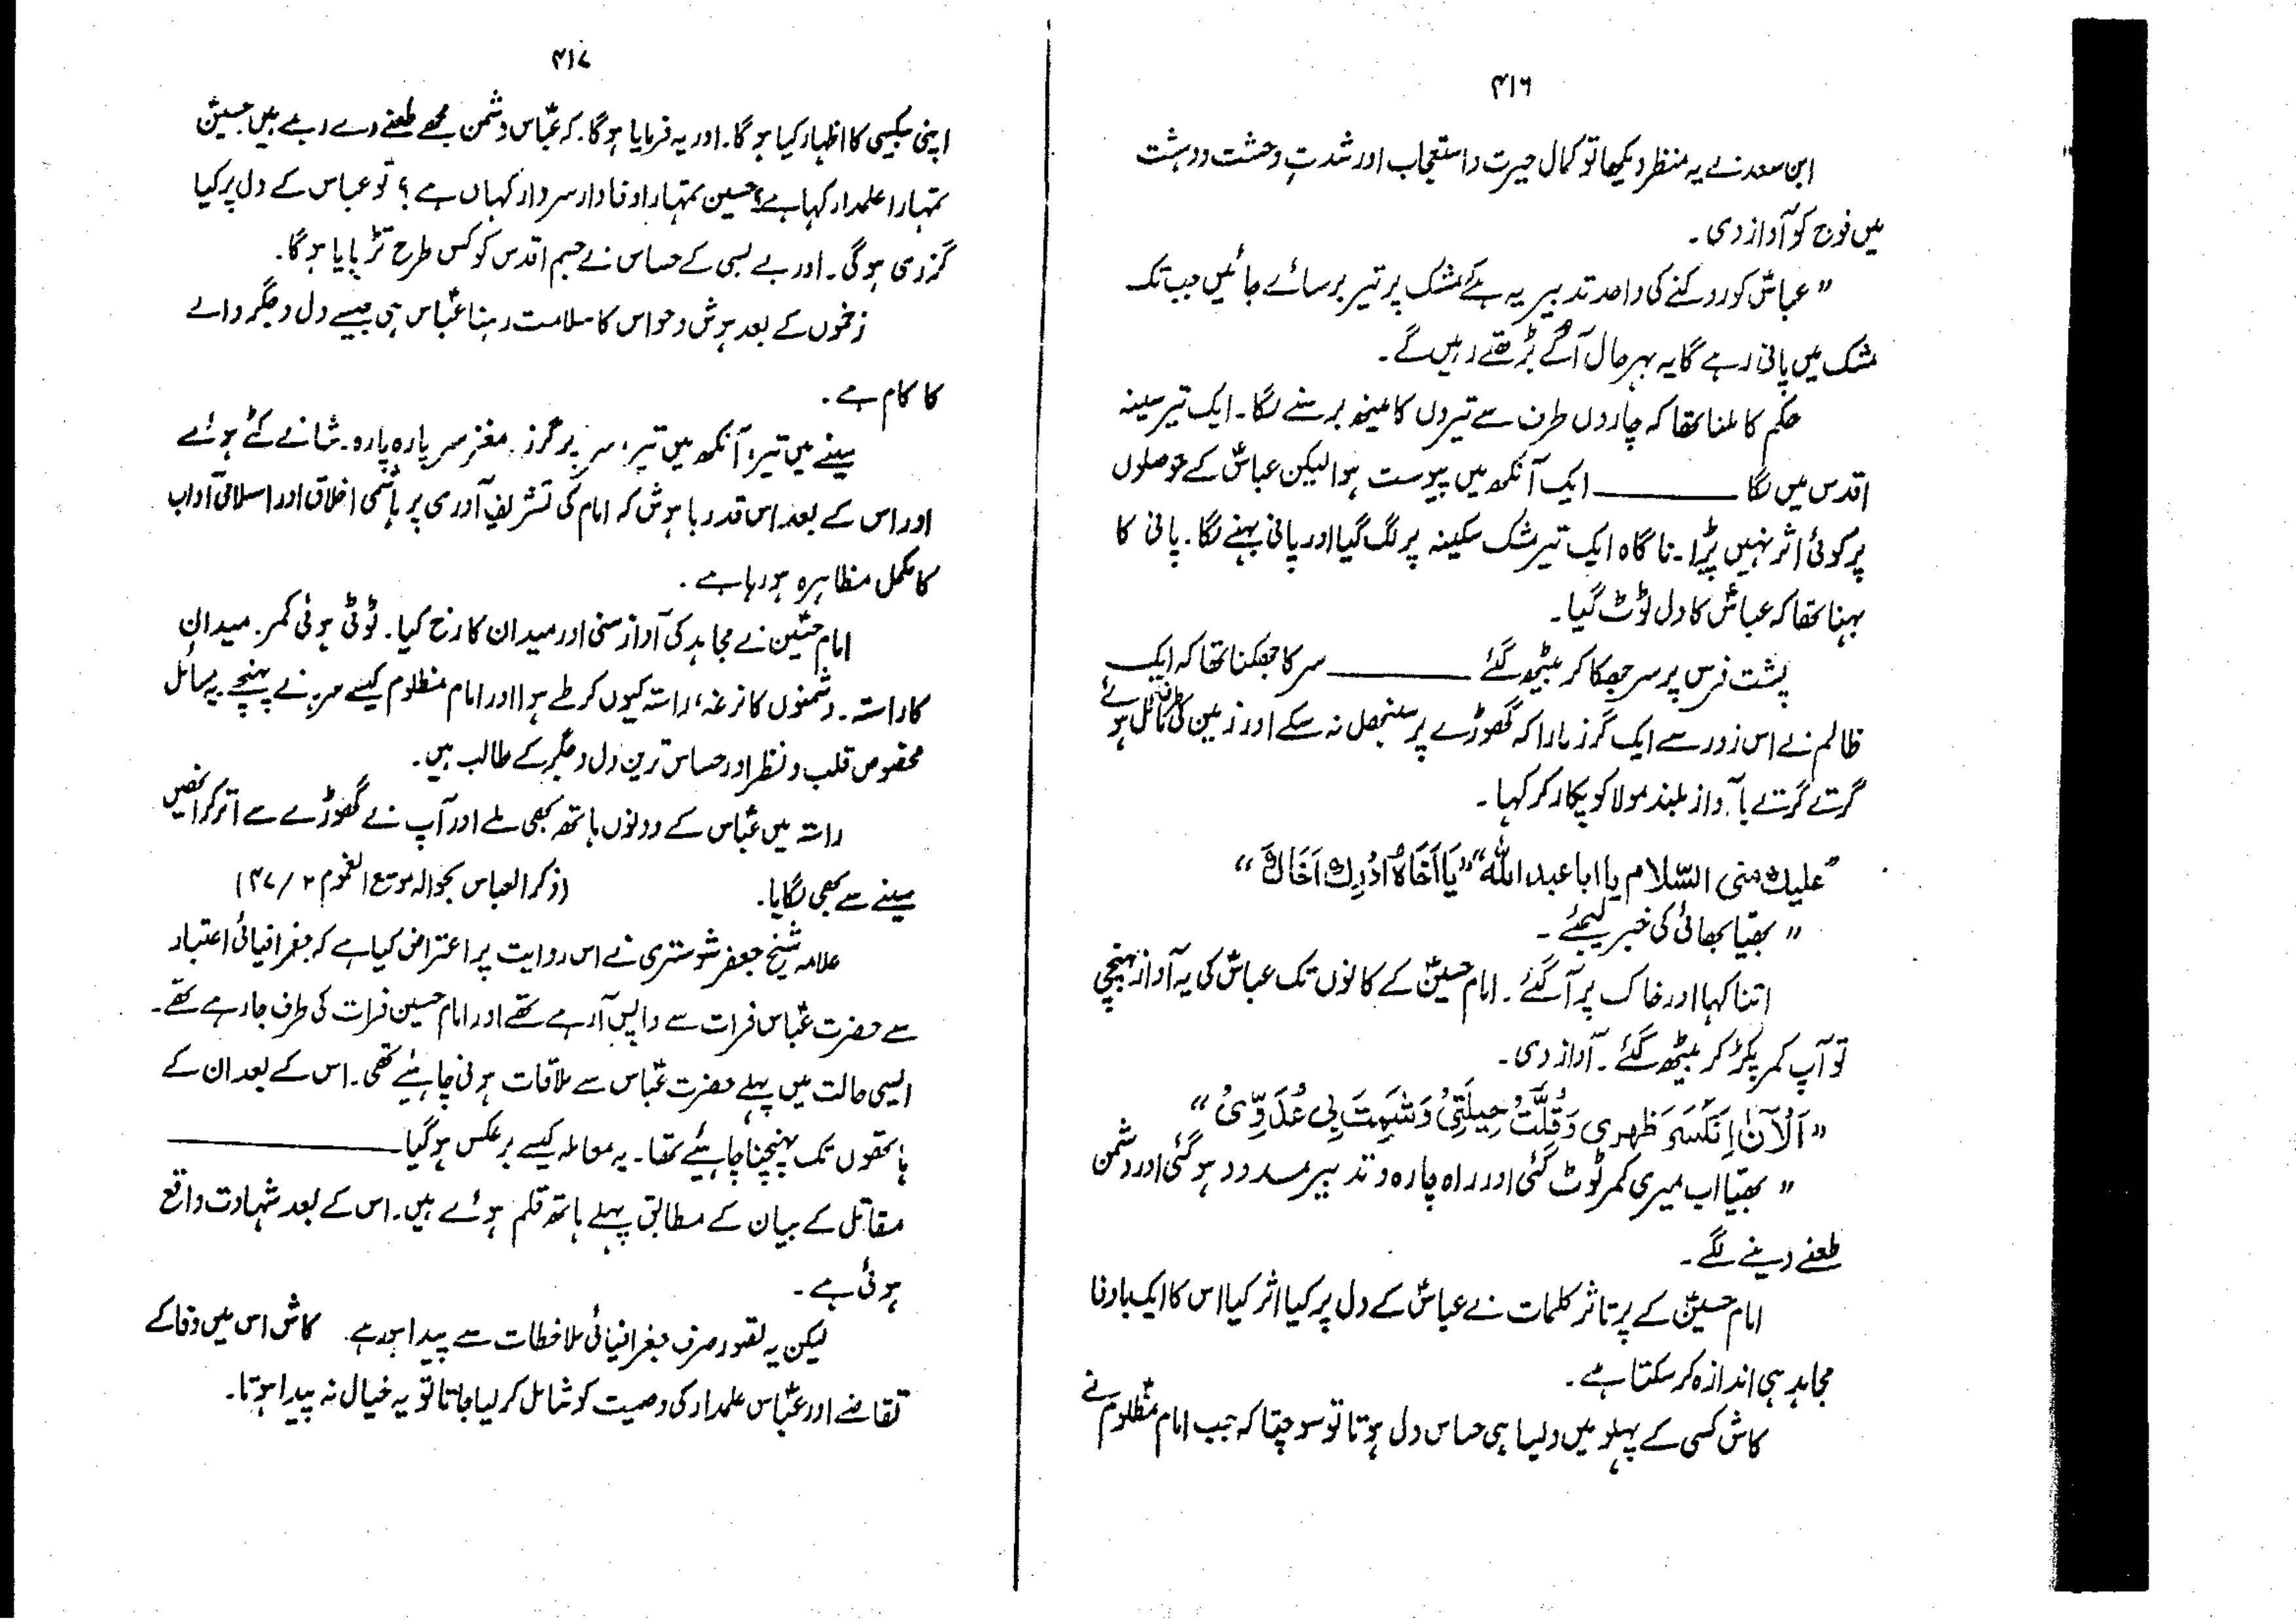 ۴۱۶
ابن سعد نے یہ منظر دیکھا تو کمال حیرت و استعجاب اور شدتِ وحشت و دہشت
میں فوج کو آواز دی۔
” عباسؑ کو روکنے کی واحد تدبیر یہ ہے کہ مشک پر تیر برسائے جائیں جب تک
مشک میں پانی رہے گا یہ بہرحال آگے بڑھتے رہیں گے۔
حکم کا ملنا تھا کہ چاروں طرف سے تیروں کا مینھ برسنے لگا۔ ایک تیر سینہ
اقدس میں لگا ـــــــــ ایک آنکھ میں پیوست ہوا لیکن عباسؑ کے حوصلوں
پر کوئی اثر نہیں پڑا۔ ناگاہ ایک تیر مشک سکینہ پر لگ گیا اور پانی بہنے لگا۔ پانی کا
بہنا تھا کہ عباسؑ کا دل ٹوٹ گیا۔
پشت فرس پر سر جھکا کر بیٹھ گئے ـــــــــ سر کا جھکنا تھا کہ ایک
ظالم نے اس زور سے ایک گرز مارا کہ گھوڑے پر سنبھل نہ سکے اور زمین کی طرف مائل ہوئے
گرتے گرتے بآواز بلند مولا کو پکار کر کہا۔
”علیك منی السّلام یا ابا عبد الله“ ”یَا اَخَاہُ اَدْرِك اَخَاكَ“
” بھیا بھائی کی خبر لیجئے۔
اتنا کہا اور خاک پر آ گئے۔ امام حسینؑ کے کانوں تک عباسؑ کی یہ آواز پہنچی
تو آپ کمر پکڑ کر بیٹھ گئے۔ آواز دی۔
” اَلْآنَ اِنْکَسَرَ ظَهری وَقَلَّتْ حِیلَتِیْ وَشَمِتَ بِی عَدُوِّیْ “
” بھیا اب میری کمر ٹوٹ گئی اور راہ چارہ و تدبیر مسدود ہو گئی اور دشمن
طعنے دینے لگے۔
امام حسینؑ کے پرتاثر کلمات نے عباسؑ کے دل پر کیا اثر کیا اس کا ایک باوفا
مجاہد ہی اندازہ کر سکتا ہے۔
کاش کسی کے پہلو میں ویسا ہی حساس دل ہوتا تو سوچتا کہ جب امام مظلومؑ نے
۴۱۷
اپنی بیکسی کا اظہار کیا ہو گا۔ اور یہ فرمایا ہو گا۔ کہ عباسؑ دشمن مجھے طعنے دے رہے ہیں حسینؑ
تمہارا علمدار کہا ہے؟ حسین تمہارا وفادار سردار کہاں ہے؟ تو عباس کے دل پر کیا
گزری ہو گی۔ اور بے بسی کے حساس نے جسم اقدس کو کس طرح تڑپایا ہو گا۔
زخموں کے بعد ہوش و حواس کا سلامت رہنا عباسؑ ہی جیسے دل و جگر والے
کا کام ہے۔
سینے میں تیر، آنکھ میں تیر، سر پر گرز۔ مغز سر پارہ پارہ۔ شانے کٹے ہوئے
اور اس کے بعد اس قدر با ہوش کہ امام کی تشریف آوری پر ہاشمی اخلاق اور اسلامی آداب
کا مکمل مظاہرہ ہو رہا ہے۔
امام حسینؑ نے مجاہد کی آواز سنی اور میدان کا رخ کیا۔ ٹوٹی ہوئی کمر۔ میدان
کا راستہ۔ دشمنوں کا نرغہ، راستہ کیوں کر طے ہوا اور امام مظلوم کیسے سرہانے پہنچے یہ مسائل
مخصوص قلب و نظر اور حساس ترین دل و جگر کے طالب ہیں۔
راستہ میں عباسؑ کے دونوں ہاتھ بھی ملے اور آپ نے گھوڑے سے اتر کر انھیں
سینے سے بھی لگایا۔ (ذکر العباس بحوالہ مومع الغموم ۲/۴۷)
علامہ شیخ جعفر شوستری نے اس روایت پر اعتراض کیا ہے کہ جغرافیائی اعتبار
سے حضرت عباسؑ فرات سے واپس آ رہے تھے اور امام حسین فرات کی طرف جا رہے تھے۔
ایسی حالت میں پہلے حضرت عباسؑ سے ملاقات ہونی چاہیئے تھی۔ اس کے بعد ان کے
ہاتھوں تک پہنچنا چاہیئے تھا۔ یہ معاملہ کیسے برعکس ہو گیا ـــــــــ
مقاتل کے بیان کے مطابق پہلے ہاتھ قلم ہوئے ہیں۔ اس کے بعد شہادت واقع
ہوئی ہے۔
لیکن یہ تصور صرف جغرافیائی ملاحظات سے پیدا ہوا ہے۔ کاش اس میں وفا کے
تقاضے اور عباسؑ علمدار کی وصیت کو شامل کر لیا جاتا تو یہ خیال نہ پیدا ہوتا۔